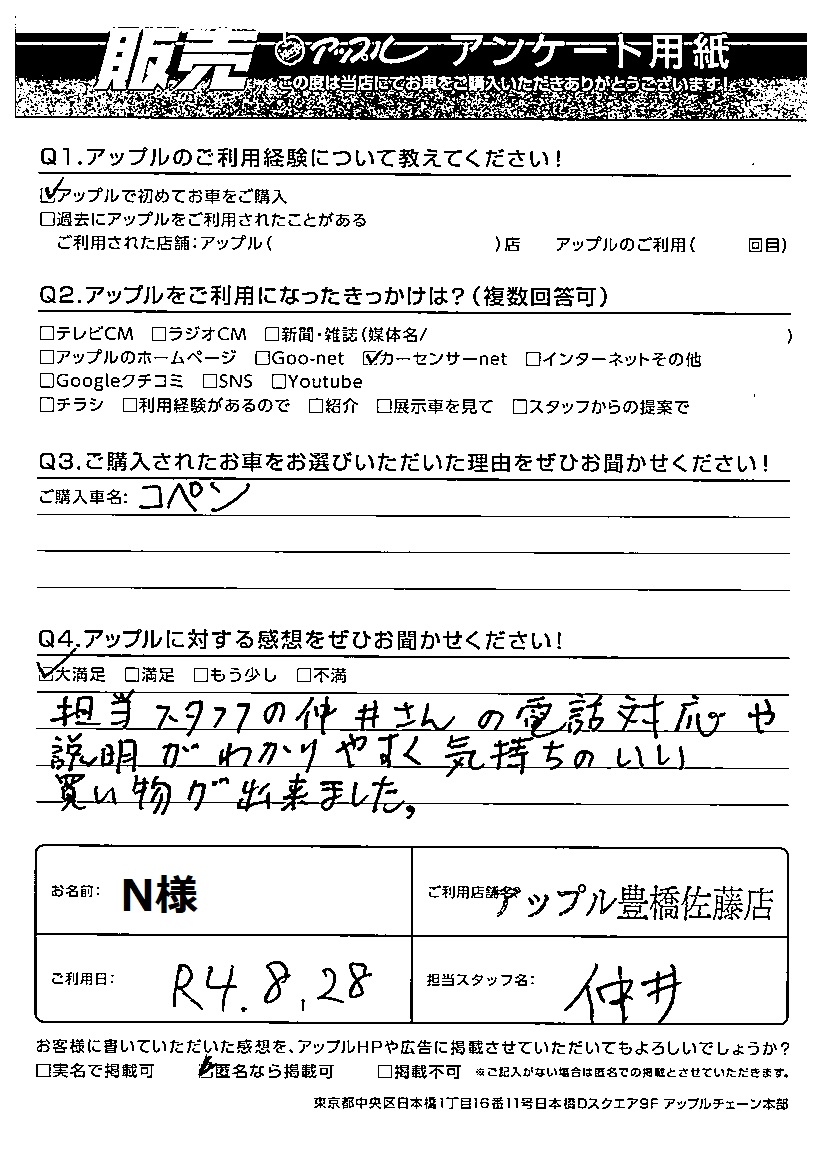 販売 アップル アンケート用紙
この度は当店にてお車をご購入いただきありがとうございます!
Q1.アップルのご利用経験について教えてください!
☑アップルで初めてお車をご購入
□過去にアップルをご利用されたことがある
ご利用された店舗:アップル( )店 アップルのご利用( 回目)
Q2.アップルをご利用になったきっかけは?(複数回答可)
□テレビCM □ラジオCM □新聞・雑誌(媒体名/ )
□アップルのホームページ □Goo-net ☑カーセンサーnet □インターネットその他
□Googleクチコミ □SNS □Youtube
□チラシ □利用経験があるので □紹介 □展示車を見て □スタッフからの提案で
Q3.ご購入されたお車をお選びいただいた理由をぜひお聞かせください!
ご購入車名: コペン
Q4.アップルに対する感想をぜひお聞かせください!
☑大満足 □満足 □もう少し □不満
担当スタッフの仲井さんの電話対応や
説明がわかりやすく気持ちのいい
買い物が出来ました。
お名前: N様 ご利用店舗名: アップル豊橋佐藤店
ご利用日: R4.8.28 担当スタッフ名: 仲井
お客様に書いていただいた感想を、アップルHPや広告に掲載させていただいてもよろしいでしょうか?
□実名で掲載可 ☑匿名なら掲載可 □掲載不可 ※ご記入がない場合は匿名での掲載とさせていただきます。
東京都中央区日本橋1丁目16番11号日本橋Dスクエア9F アップルチェーン本部